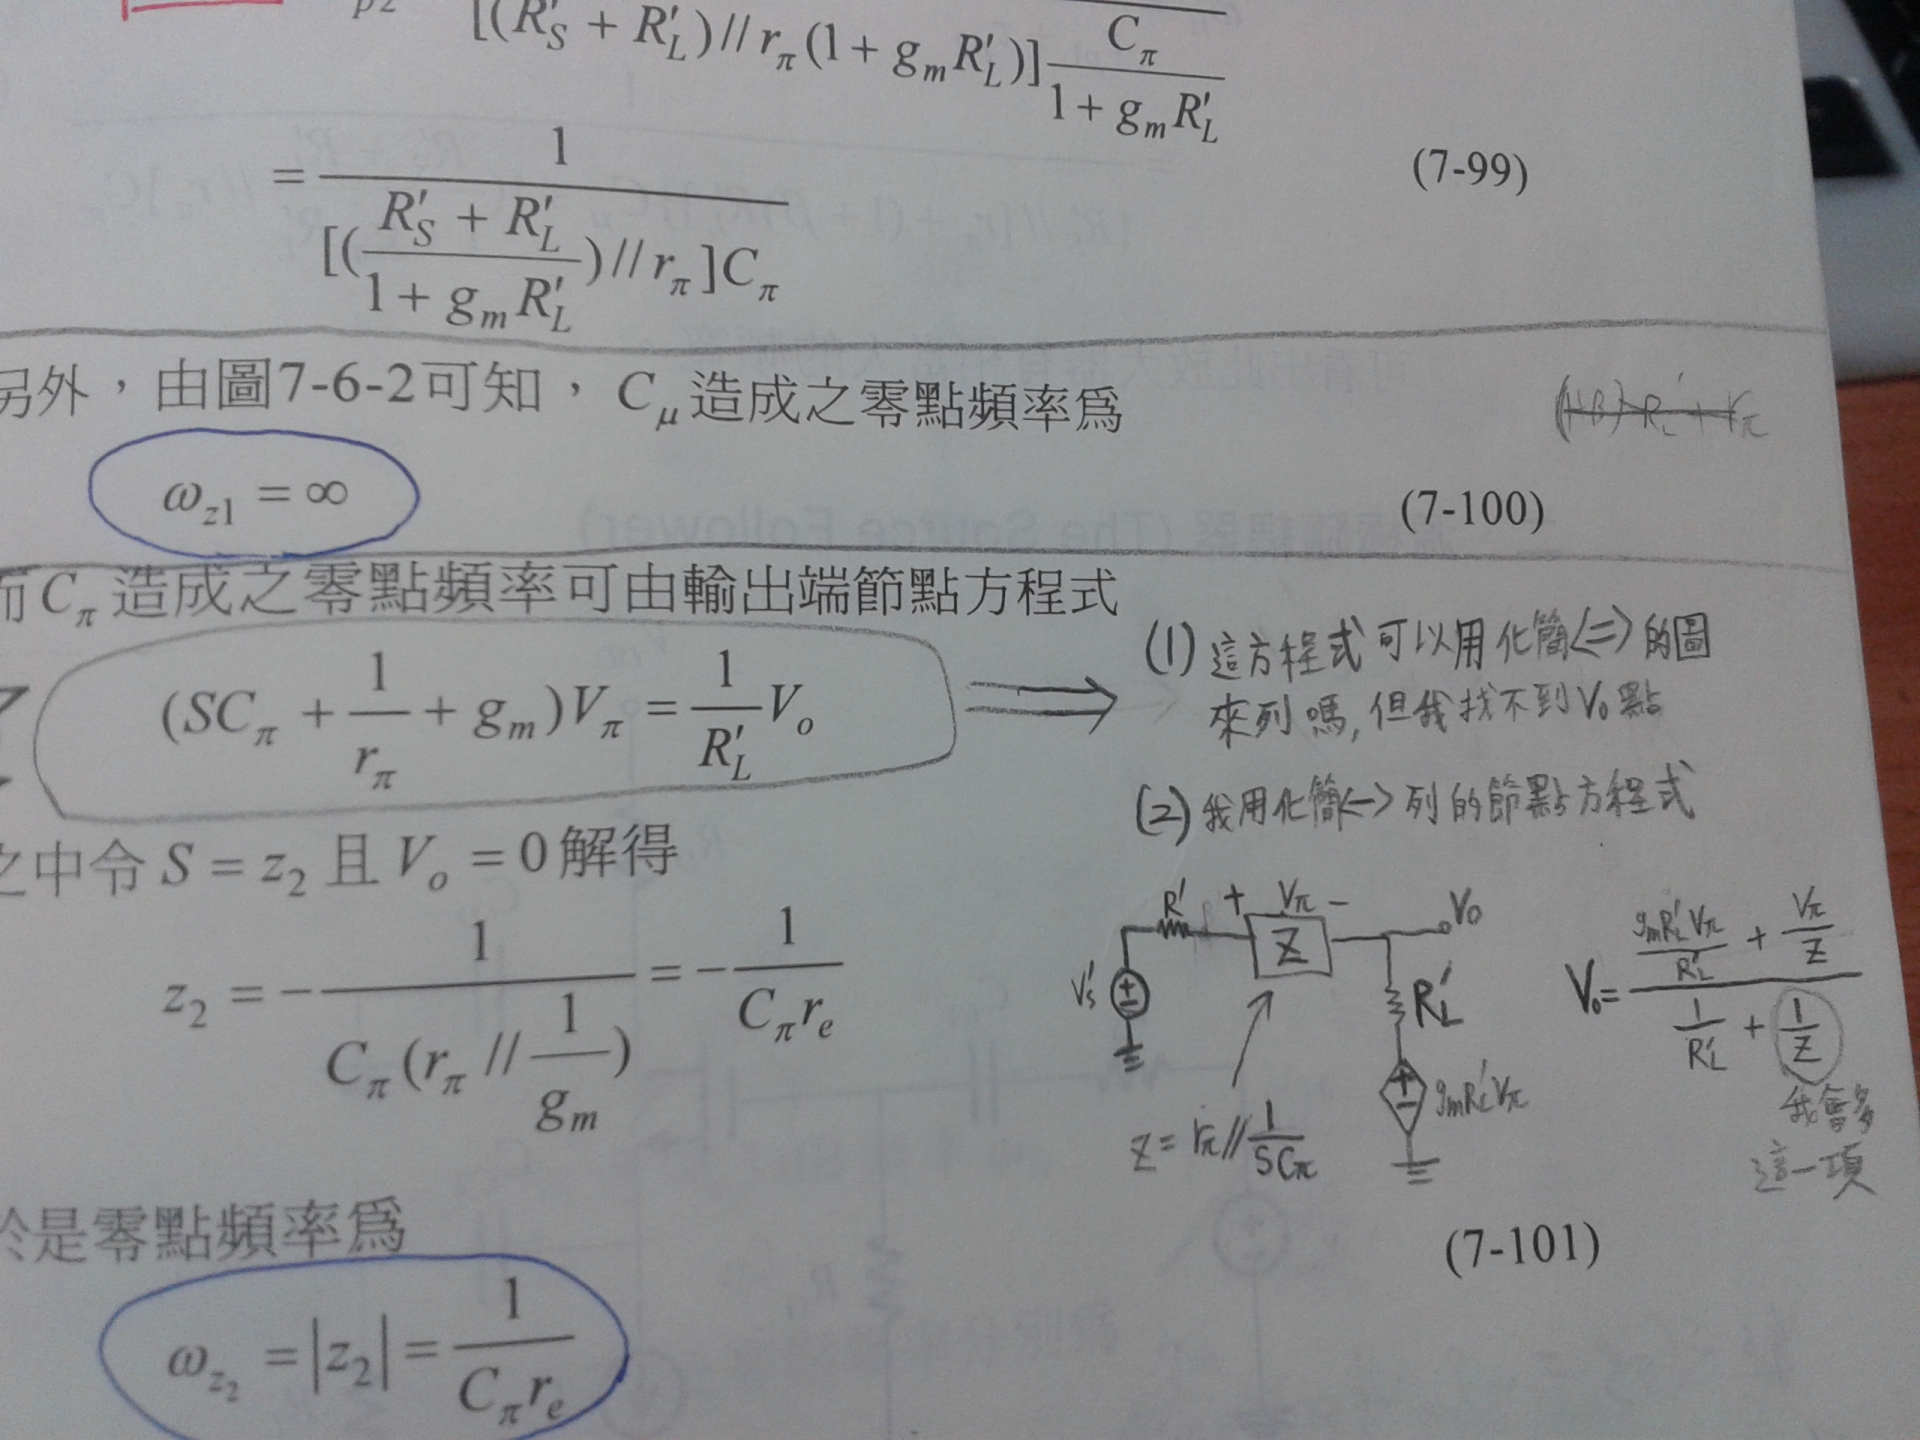 [(R'_S + R'_L)//r_π(1 + g_m R'_L)] C_π / (1 + g_m R'_L)
= 1 / {[((R'_S + R'_L) / (1 + g_m R'_L))//r_π]C_π}
(7-99)
另外，由圖7-6-2可知，C_μ造成之零點頻率為
ω_z1 = ∞
(7-100)
而C_π造成之零點頻率可由輸出端節點方程式
(SC_π + 1/r_π + g_m)V_π = (1/R'_L)V_o
(1) 這方程式可以用化簡<二>的圖
來列嗎,但我找不到Vo點
(2) 我用化簡<一>列的節點方程式
之中令 S = z_2 且 V_o = 0 解得
z_2 = − 1 / (C_π(r_π // (1/g_m))) = − 1 / (C_π r_e)
R' + Vπ − Vo
Z
Vs'
RL'
gmRL'Vπ
Z = rπ // 1/SCπ
Vo = (gmRL'Vπ/RL' + Vπ/Z) / (1/RL' + 1/Z)
我會多
這一項
(7-101)
於是零點頻率為
ω_z2 = |z_2| = 1 / (C_π r_e)